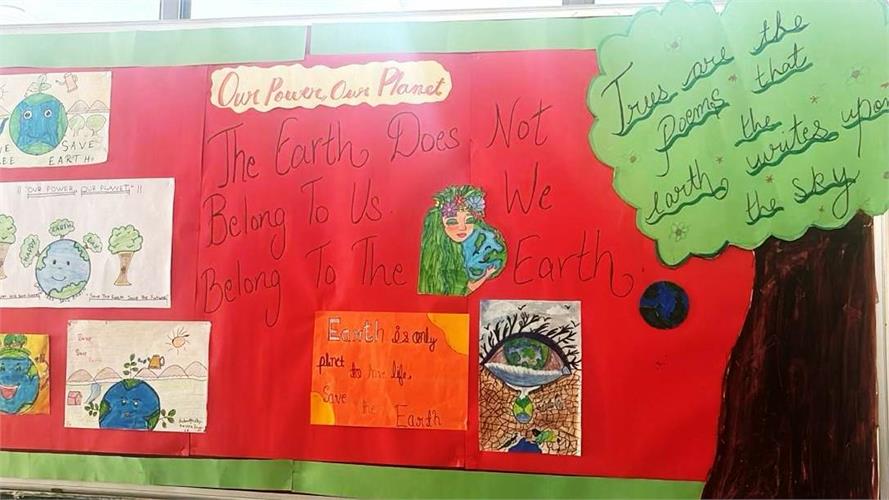 Our Power, Our Planet
The Earth Does Not
Belong To Us. We
Belong To The Earth.
Trees are the
poems that
the
earth writes upon
the sky
SAVE
EARTH
"OUR POWER, OUR PLANET"
HAPPY EARTH DAY
"Save The Earth Save The Future"
Save
Earth is only
planet to have life,
Save
the Earth